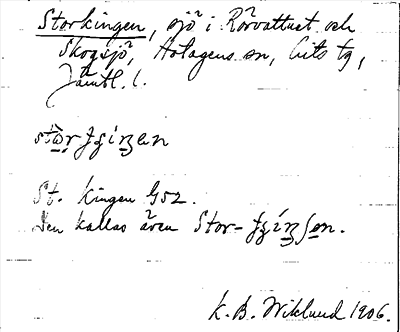 Storkingen, sjö i Rörvattnet och
Skogsjö, Hotagens sn, Lits tg,
Jämtl. l.
St. Kingen G52.
Den kallas även Stor-
K. B. Wiklund 1906.